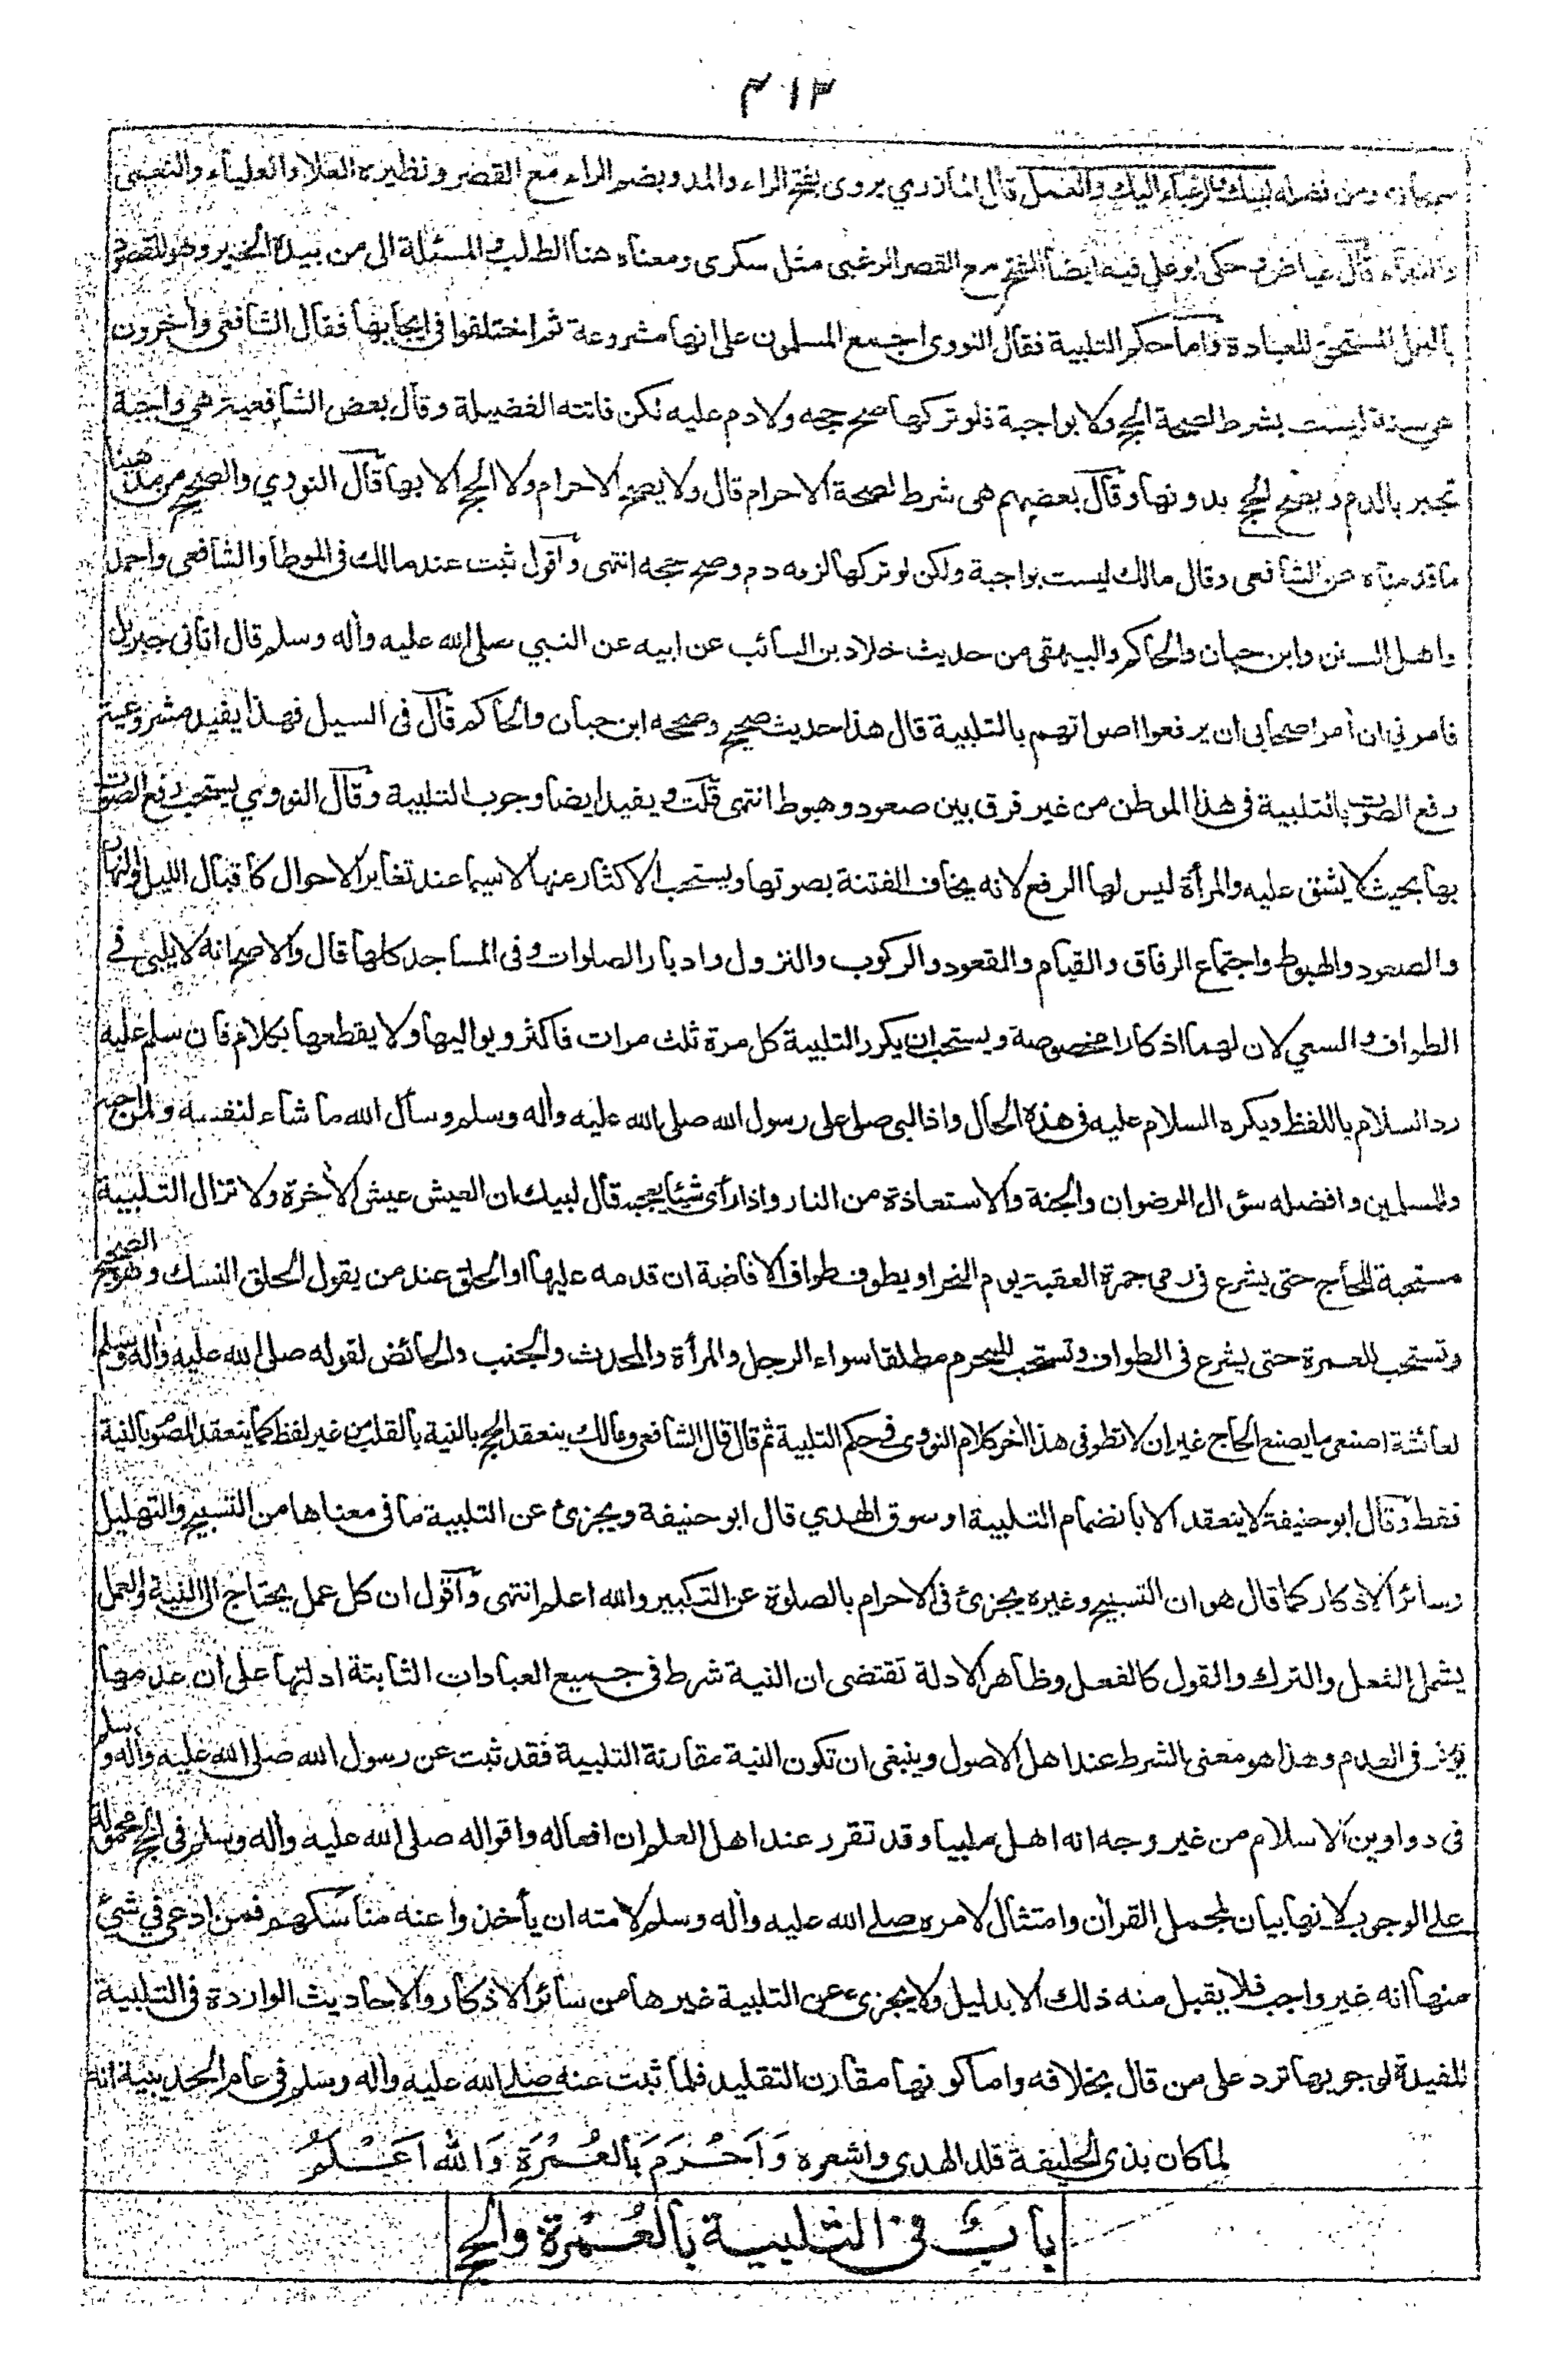 ٣١٣
سبحانه ومن فضله لبيك والرغباء اليك والعمل قال المازري يروى بفتح الراء والمد وبضم الراء مع القصر ونظيره العلا والعلياء والنعمى
والنعماء قال عياض وحكى ابو علي فيه ايضا الفتح مع القصر الرغبى مثل سكرى ومعناه هنا الطلب والمسئلة الى من بيده الخير وهو المقصود
بالعمل المستحق للعبادة فاما حكم التلبية فقال النووي اجمع المسلمون على انها مشروعة ثم اختلفوا في ايجابها فقال الشافعي واخرون
هي سنة ليست بشرط لصحة الحج ولا بواجبة فلو تركها صح حجه ولا دم عليه لكن فاتته الفضيلة وقال بعض الشافعية هي واجبة
تجبر بالدم ويصح الحج بدونها وقال بعضهم هي شرط لصحة الاحرام قال ولا يصح الاحرام ولا الحج الا بها قال النووي والصحيح من مذهبنا
ما قدمناه عن الشافعي وقال مالك ليست بواجبة ولكن لو تركها لزمه دم وصح حجه انتهى واقول ثبت عند مالك في الموطأ والشافعي واحمد
واهل السنن وابن حبان والحاكم والبيهقي من حديث خلاد بن السائب عن ابيه عن النبي صلى الله عليه وأله وسلم قال اتاني جبريل
فامرني ان أمر اصحابي ان يرفعوا اصواتهم بالتلبية قال هذا حديث صحيح وصححه ابن حبان والحاكم قال في السيل فهذا يفيد مشروعية
رفع الصوت بالتلبية في هذا الموطن من غير فرق بين صعود وهبوط انتهى قلت ويفيد ايضا وجوب التلبية وقال النووي يستحب رفع الصوت
بها بحيث لا يشق عليه والمرأة ليس لها الرفع لانه يخاف الفتنة بصوتها ويستحب الاكثار منها لاسيما عند تغاير الاحوال كاقبال الليل والنهار
والصعود والهبوط واجتماع الرفاق والقيام والقعود والركوب والنزول وادبار الصلوات وفي المساجد كلها قال والاصح انه لا يلبي في
الطواف والسعي لان لهما اذكارا مخصوصة ويستحب ان يكرر التلبية كل مرة ثلث مرات فاكثر ويواليها ولا يقطعها بكلام فان سلم عليه
رد السلام باللفظ ويكره السلام عليه في هذه الحال واذا لبى صلى على رسول الله صلى الله عليه وأله وسلم وسأل الله ما شاء لنفسه ولمن احبه
وللمسلمين وافضله سؤال الرضوان والجنة والاستعاذة من النار واذا رأى شيئا يعجبه قال لبيك ان العيش عيش الأخرة ولا تزال التلبية
مستحبة للحاج حتى يشرع في رمي جمرة العقبة يوم النحر او يطوف طواف الافاضة ان قدمه عليها او الحلق عند من يقول الحلق النسك وهو الصحيح
وتستحب للعمرة حتى يشرع في الطواف وتستحب للمحرم مطلقا سواء الرجل والمرأة والمحدث والجنب والحائض لقوله صلى الله عليه وأله وسلم
لعائشة اصنعي ما يصنع الحاج غير ان لا تطوفي هذا أخر كلام النووي في حكم التلبية ثم قال قال الشافعي ومالك ينعقد الحج بالنية بالقلب من غير لفظ كما ينعقد الصوم بالنية
فقط وقال ابو حنيفة لا ينعقد الا بانضمام التلبية او سوق الهدي قال ابو حنيفة ويجزئ عن التلبية ما في معناها من التسبيح والتهليل
وسائر الاذكار كما قال هو ان التسبيح وغيره يجزئ في الاحرام بالصلوة عن التكبير والله اعلم انتهى واقول ان كل عمل يحتاج الى النية والعمل
يشمل الفعل والترك والقول كالفعل وظاهر الادلة تقتضي ان النية شرط في جميع العبادات الثابتة ادلتها على ان عدمها
يؤثر في العدم وهذا هو معنى الشرط عند اهل الاصول وينبغي ان تكون النية مقارنة التلبية فقد ثبت عن رسول الله صلى الله عليه وأله وسلم
في دواوين الاسلام من غير وجه انه اهل ملبيا وقد تقرر عند اهل العلم ان افعاله واقواله صلى الله عليه وأله وسلم في الحج محمولة
على الوجوب لانها بيان لمجمل القرأن وامتثال لامره صلى الله عليه وأله وسلم لامته ان يأخذوا عنه مناسكهم فمن ادعى في شئ
منها انه غير واجب فلا يقبل منه ذلك الا بدليل ولا يجزئ عن التلبية غيرها من سائر الاذكار والاحاديث الواردة في التلبية
المفيدة لوجوبها ترد على من قال بخلافه واما كونها مقارن التقليد فلما ثبت عنه صلى الله عليه وأله وسلم في عام الحديبية انه
لما كان بذي الحليفة قلد الهدي واشعره وَاَحْرَمَ بالعُمْرَةِ وَالله اَعْلَمُ
بابٌ في التلبية بالعُمْرَة والحج